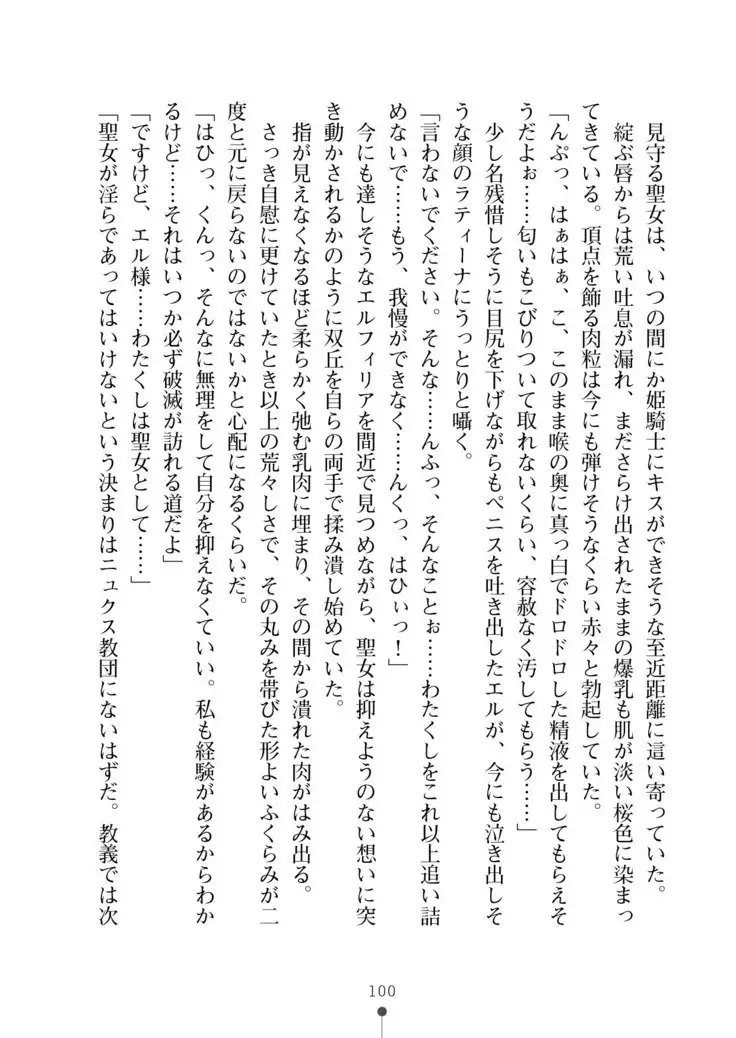 見守る聖女は、いつの間にか姫騎士にキスができそうな至近距離に這い寄っていた。
綻ぶ唇からは荒い吐息が漏れ、まださらけ出されたままの爆乳も肌が淡い桜色に染まっ
てきている。頂点を飾る肉粒は今にも弾けそうなくらい赤々と勃起していた。
「んぷっ、はぁはぁ、こ、このまま喉の奥に真っ白でドロドロした精液を出してもらえそ
うだよぉ……匂いもこびりついて取れないくらい、容赦なく汚してもらう……」
少し名残惜しそうに目尻を下げながらもペニスを吐き出したエルが、今にも泣き出しそ
うな顔のラティーナにうっとりと囁く。
「言わないでください。そんな……んふっ、そんなことぉ……わたくしをこれ以上追い詰
めないで……もう、我慢ができなく……んくっ、はひぃっ！」
今にも達しそうなエルフィリアを間近で見つめながら、聖女は抑えようのない想いに突
き動かされるかのように双丘を自らの両手で揉み潰し始めていた。
指が見えなくなるほど柔らかく弛む乳肉に埋まり、その間から潰れた肉がはみ出る。
さっき自慰に更けていたとき以上の荒々しさで、その丸みを帯びた形よいふくらみが二
度と元に戻らないのではないかと心配になるくらいだ。
「はひっ、くんっ、そんなに無理をして自分を抑えなくていい。私も経験があるからわか
るけど……それはいつか必ず破滅が訪れる道だよ」
「ですけど、エル様……わたくしは聖女として……」
「聖女が淫らであってはいけないという決まりはニュクス教団にないはずだ。教義では次
100